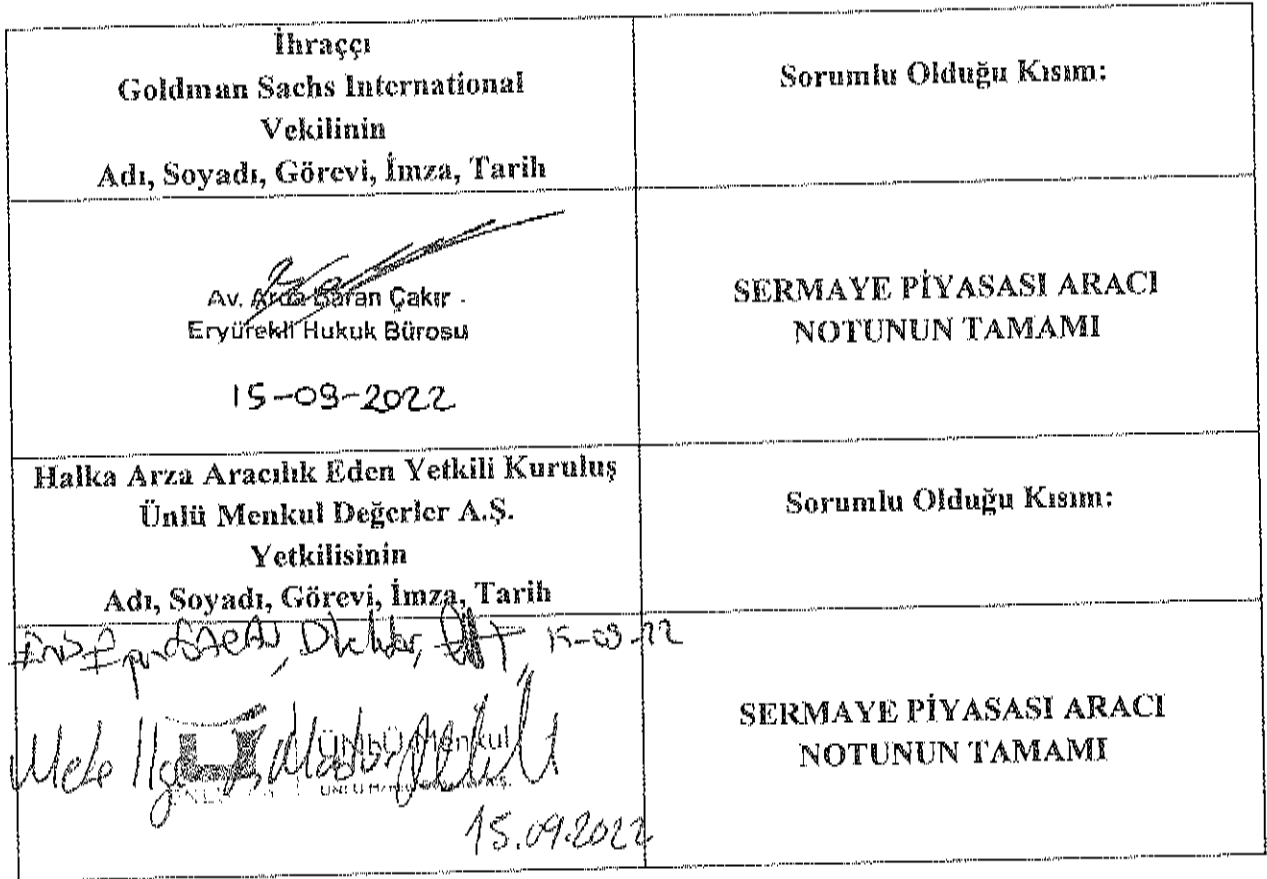 İhraççı
Goldman Sachs International
Vekilinin
Adı, Soyadı, Görevi, İmza, Tarih
Sorumlu Olduğu Kısım:
Av. Arda Baran Çakır
Eryürekli Hukuk Bürosu
15-09-2022
SERMAYE PİYASASI ARACI
NOTUNUN TAMAMI
Halka Arza Aracılık Eden Yetkili Kuruluş
Ünlü Menkul Değerler A.Ş.
Yetkilisinin
Adı, Soyadı, Görevi, İmza, Tarih
Sorumlu Olduğu Kısım:
15-09-22
ÜNLÜ Menkul
15.09.2022
SERMAYE PİYASASI ARACI
NOTUNUN TAMAMI